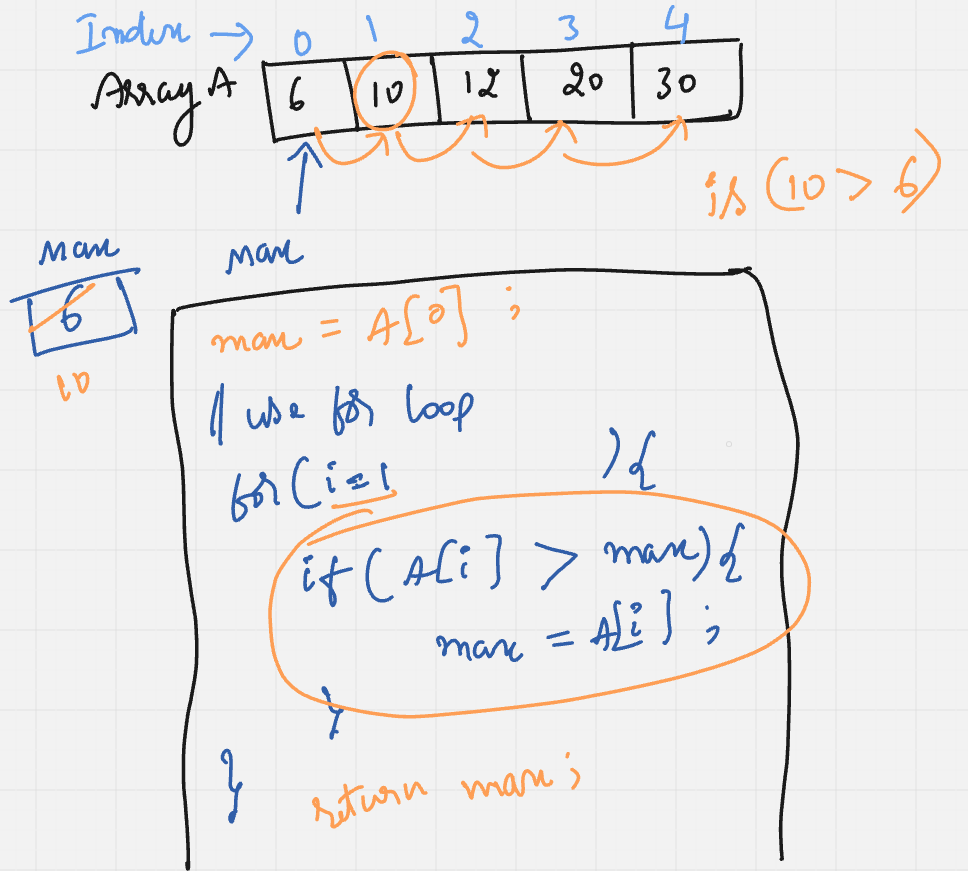 Index → 0 1 2 3 4
Array A 6 10 12 20 30
is (10 > 6)
max
max
6
10
max = A[0] ;
// use for loop
for(i=1 ){
if(A[i] > max){
max = A[i] ;
}
}
return max;